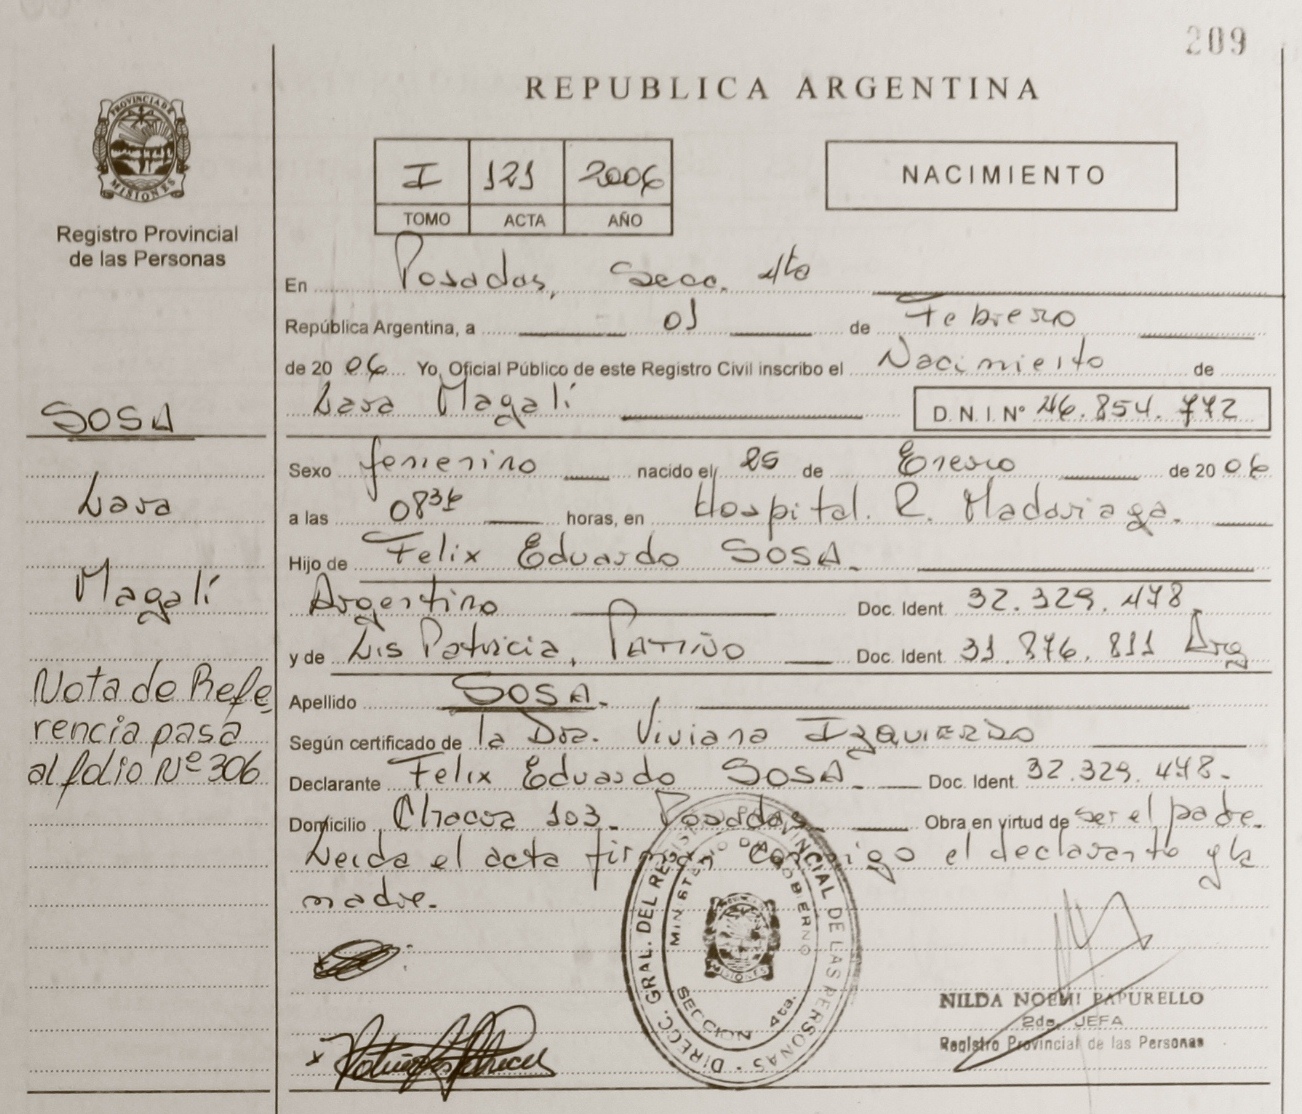 209
REPUBLICA ARGENTINA
PROVINCIA DE
MISIONES
Registro Provincial
de las Personas
I 121 2006
TOMO ACTA AÑO
NACIMIENTO
En Posadas, Secc. 4ta
República Argentina, a 01 de Febrero
de 2006 Yo, Oficial Público de este Registro Civil inscribo el Nacimiento de
Lara Magalí D.N.I. Nº 46.854.772
SOSA
Lara
Magalí
Nota de Refe
rencia pasa
al folio Nº 306
Sexo femenino nacido el 25 de Enero de 2006
a las 08 horas, en Hospital. R. Madariaga.
Hijo de Felix Eduardo SOSA.
Argentino Doc. Ident. 32.329.478
y de Lis Patricia, PATIÑO Doc. Ident. 31.876.811 Arg
Apellido SOSA.
Según certificado de la Dra. Viviana IZQUIERDO
Declarante Felix Eduardo SOSA. Doc. Ident. 32.329.478.
Domicilio Chacra 103. Posadas Obra en virtud de ser el padre.
Leida el acta firman conmigo el declarante y la
madre.
DIRECC. GRAL. DEL REGISTRO PROVINCIAL DE LAS PERSONAS
MINISTERIO DE GOBIERNO
MISIONES
SECCION 4ta.
NILDA NOEMI PAPURELLO
2da. JEFA
Registro Provincial de las Personas